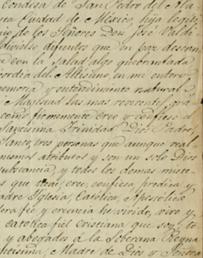 Condesa de San Pedro del Ala
Ciudad de Mexico, hija legiti
de los Señores Don José Valdi
difuntos que en paz descan
con la salud algo quebrantada
del Altisimo en mi entero
memoria y entendimiento natural
Magestad las mas
como firmemente creo y confieso el
Santisima Trinidad Dios Padre,
Santo, tres personas que aunque real
mismos atributos y son un solo Dios
substancia, y todos los demas miste
que tiene, cree, confiesa, predica y
Madre Iglesia, Catolica, Apostolica
fe y creencia he vivido, vivo y
catolica fiel cristiana que soy, to
y abogada a la Soberana Reyna
Madre de Dios y Señora